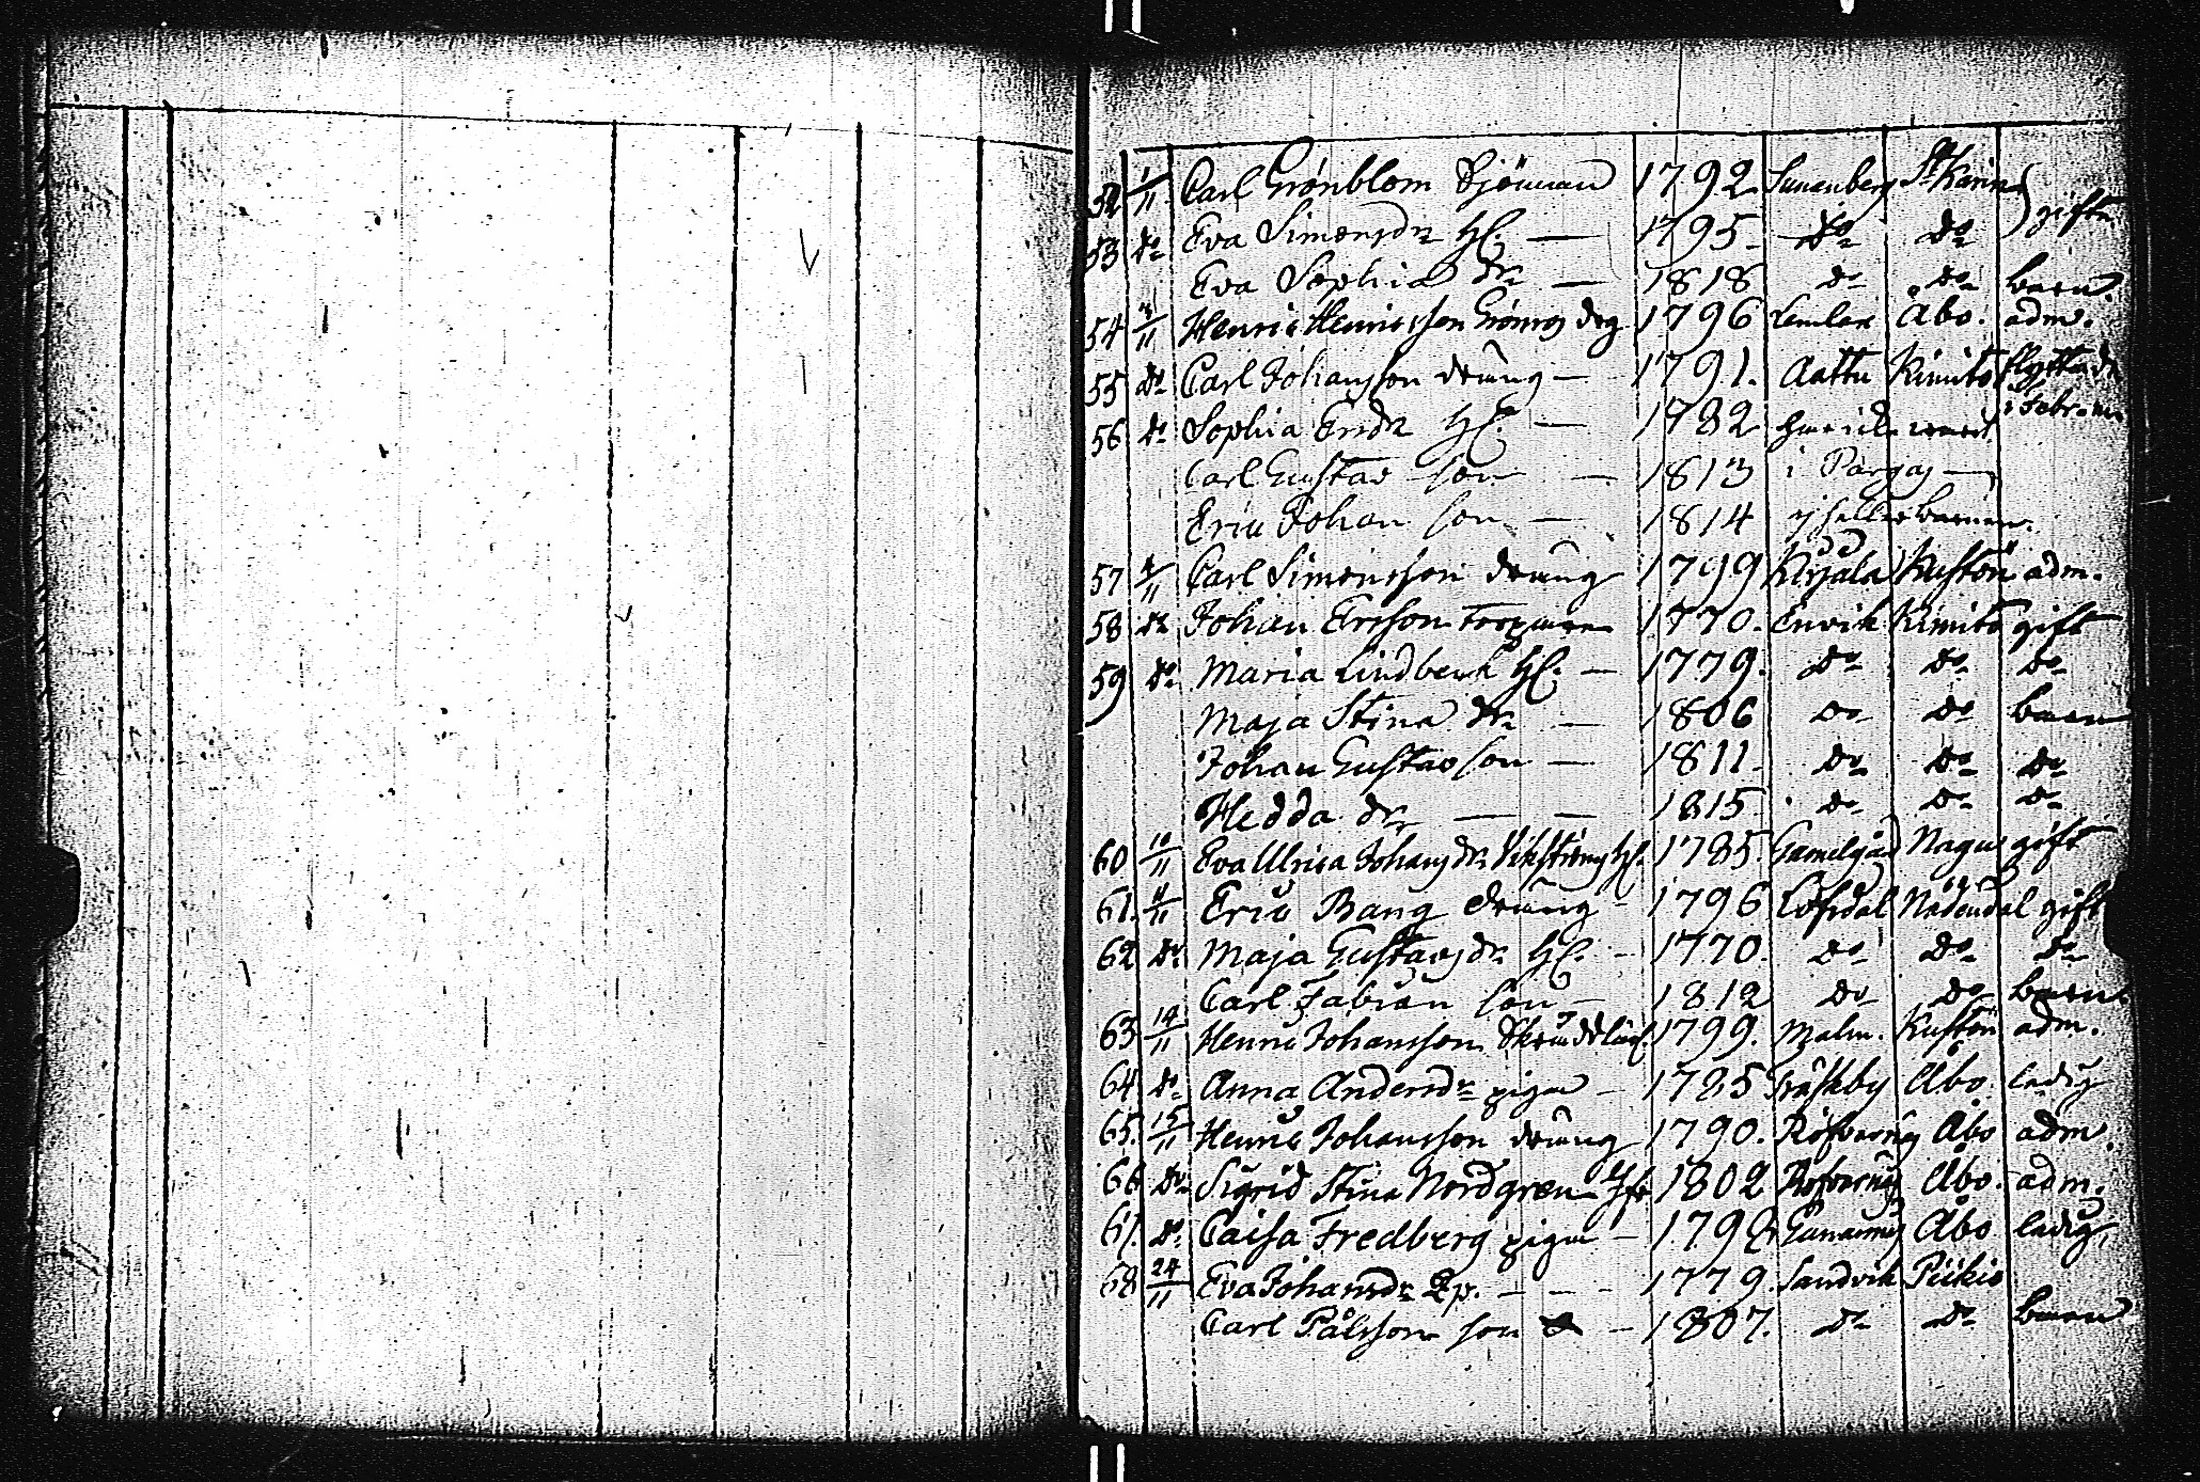 52 1/11 Carl Grönblom Sjöman 1792. Sunnenberg St Karin } gifte
53 do Eva Simonsdr H. — 1795 — do do
Eva Sophia dr — 1818 do do barn.
54 Henric Henricsson Grönroos drg 1796 Lemlax Åbo. adm.
55 do Carl Johansson dräng — 1791. Aattu Kimito flyttade
56 do Sophia Ersdr H. — 1782 i Febr.
Carl Gustav son — 1813 i Pargas —
Eric Johan son — 1814 ej heller barnen.
57 4/11 Carl Simonsson dräng 1799 Kustö adm.
58 do Johan Ersson Torpare 1770. Envik Kimito gift
59 do Maria Lindberg H. — 1779. do do do
Maja Stina dr — 1806 do do barn
Johan Gustav son — 1811 do do do
Hedda dr — — 1815 do do do
60 10/11 Eva Ulrica Johansdr H. 1785. Gamelgård Nagu gift
61. 11/11 Eric Bang dräng - 1796 Löfdal Nådendal gift
62 do Maja Gustavsdr H. - 1770. do do do
Carl Fabian son - 1812 do do barn
63 14/11 Henric Johansson Skräddlärl. 1799. Malm. Kustö adm.
64 do Anna Andersdr piga - 1785 Åbo ledig
65. 15/11 Henric Johansson dräng 1790. Åbo adm.
66 do Sigrid Stina Nordgren Jfr 1802 Åbo. adm.
67. do Caisa Fredberg piga - 1792 Åbo ledig,
68 24/11 Eva Johansdr - - - 1779. Sandvik Piikis
Carl Pålsson son — 1807. do do barn